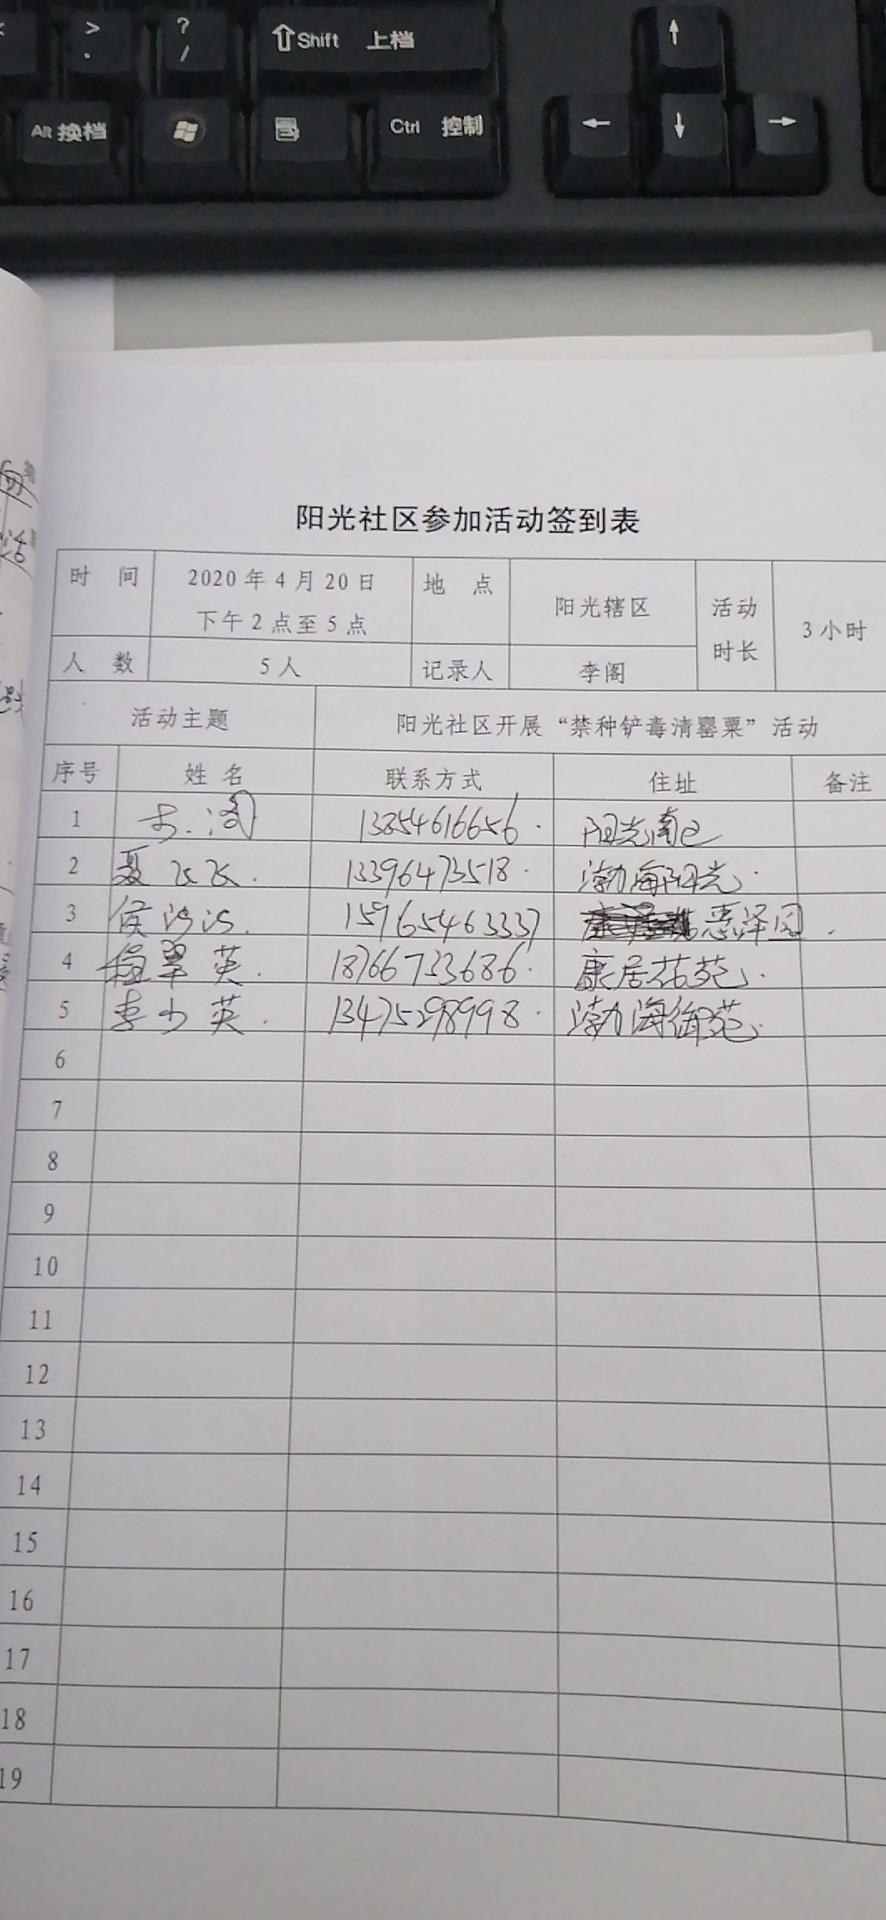 >
.
?
/
Shift 上档
↑
Alt 换档
Ctrl 控制
←
↓
→
阳光社区参加活动签到表
时 间 2020 年 4 月 20 日 下午 2 点至 5 点 地 点 阳光辖区 活动时长 3 小时
人 数 5 人 记录人 李阁
活动主题 阳光社区开展“禁种铲毒清罂粟”活动
序号 姓 名 联系方式 住址 备注
1 李阁 13854616656 阳光南区
2 聂飞飞 13396473518 渤海阳光
3 侯沙沙 15965463337 惠泽园
4 程翠英 18766733686 康居花苑
5 李少英 13475298998 渤海御苑
6
7
8
9
10
11
12
13
14
15
16
17
18
19